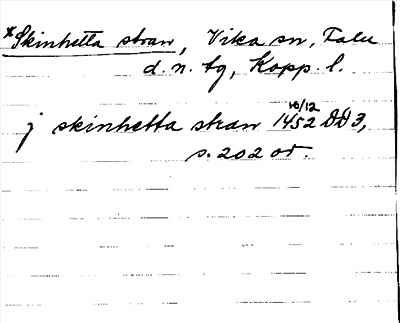 *Skinhetta straw, Vika sn, Falu
d. n. tg, Kopp. l.
j skinhetta straw 10/12 1452 DD 3,
s. 202 or.